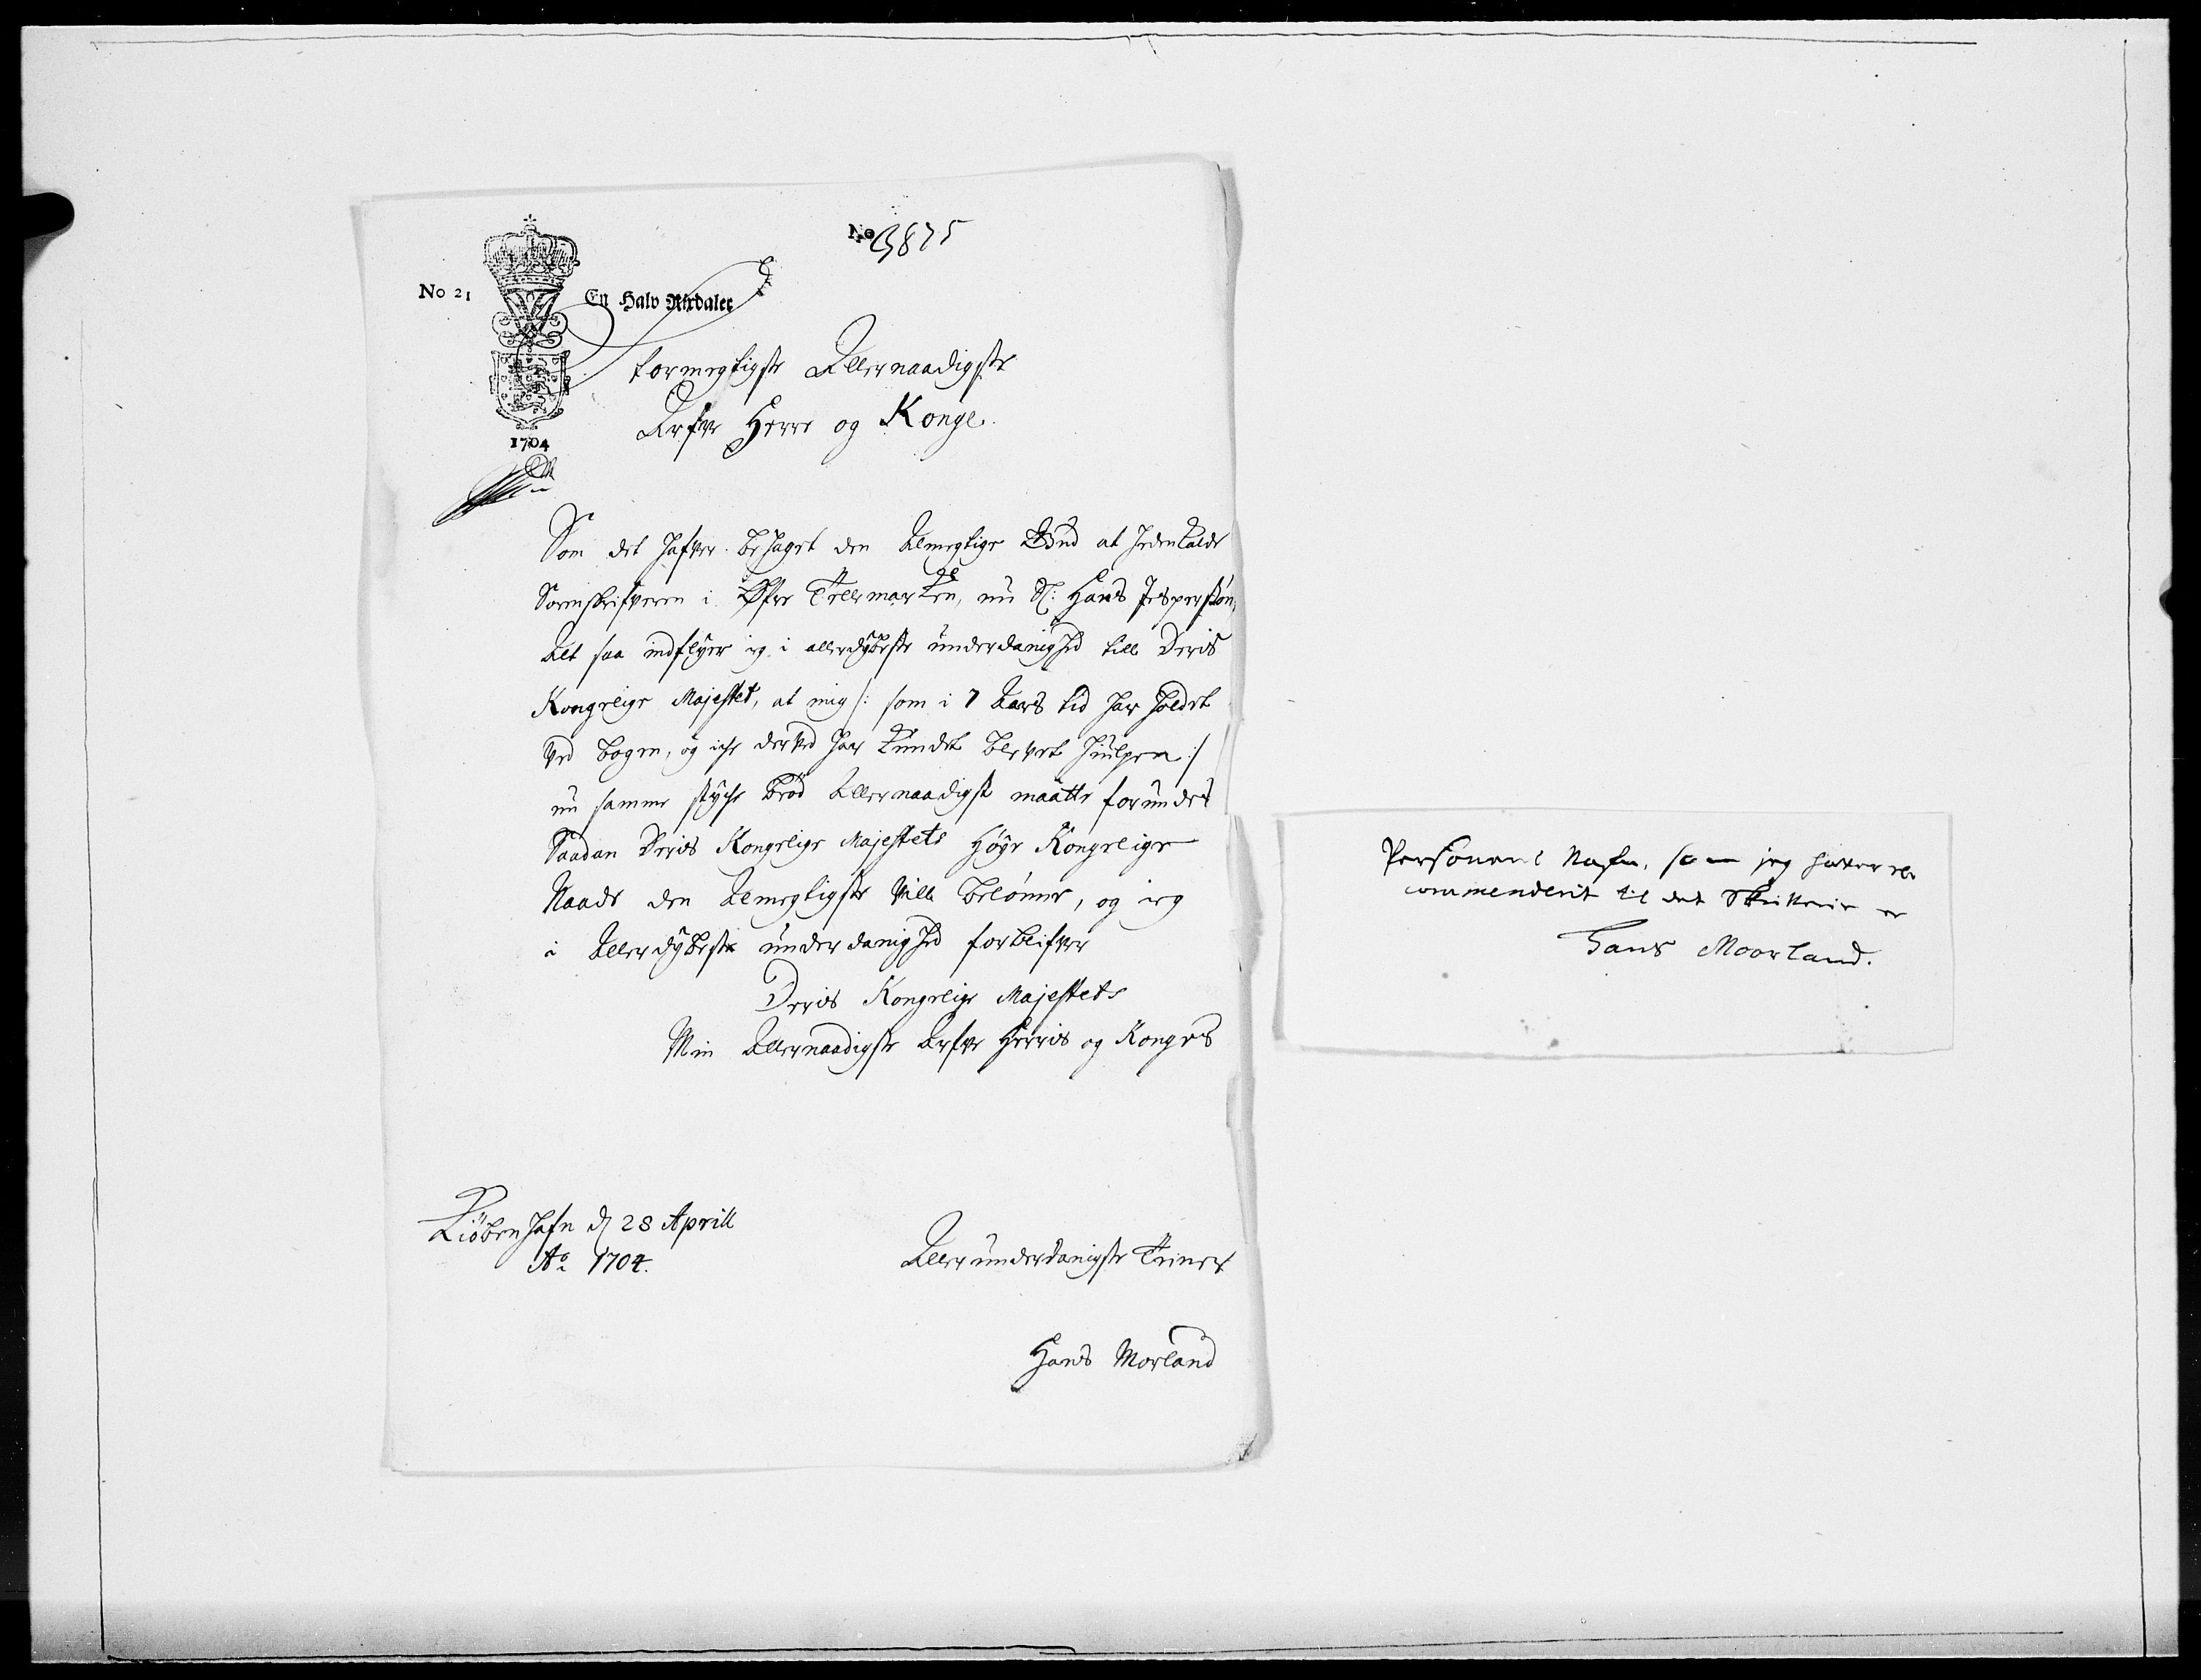 No 3875
No 21
En Halv Rixdaler
1704
Stormegtigste Allernaadigste
Arfve Herre og Konge.
Som det hafver behaget den Almegtige Gud at hedenkalde
Sorenskrifveren i Øfre Tellemarken, nu Sl: Hans Jespersøn,
Alt saa indflyer ieg i allerdybeste underdanighed till Deris
Kongelige Majestet, at mig /: som i 7 Aars tid har holdet
ved bogen, og iche derved har kundet blevet hiulpen :/
nu samme styche brød Allernaadigst maatte forundes
Saadan Deris Kongelige Majestets Høye Kongelige
Naade den Almegtigste Vill belønne, og ieg
i Allerdybeste underdanighed forblifver
Deris Kongelige Majestets
Min Allernaadigste Arfve Herris og Konges
Kiøbenhafn d 28 Aprill
Ao 1704.
Aller underdanigste Tiener
Hans Morland
Personens Nafn, som jeg hafver re-
commenderit til det Skriverie er
Hans Moorland.